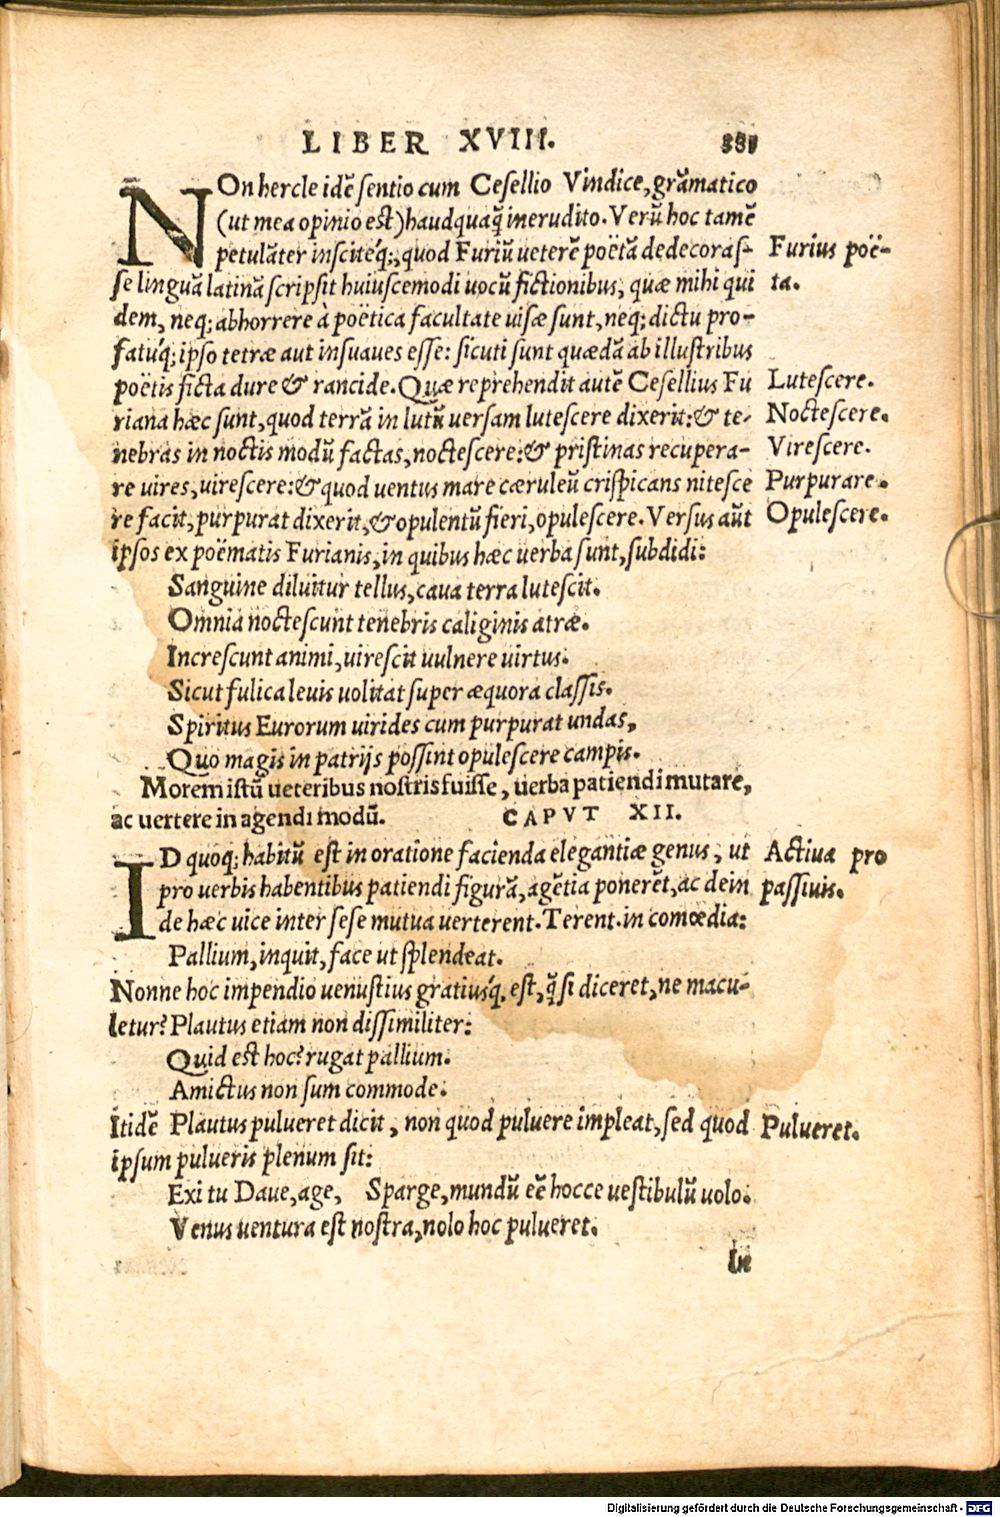 LIBER XVIII. 331
NOn hercle idē sentio cum Cesellio Vindice, grāmatico
(ut mea opinio est) haudquaq̄ inerudito. Verū hoc tamē
petulāter insciteq́;, quod Furiū ueterē poëtā dedecoras- Furius poë-
se linguā latinā scripsit huiuscemodi uocū fictionibus, quæ mihi qui ta.
dem, neq; abhorrere à poëtica facultate uisæ sunt, neq; dictu pro-
fatuq́; ipso tetræ aut insuaues esse: sicuti sunt quædā ab illustribus
poëtis ficta dure & rancide. Quæ reprehendit autē Cesellius Fu Lutescere.
riana hæc sunt, quod terrā in lutū uersam lutescere dixerit: & te- Noctescere.
nebras in noctis modū factas, noctescere: & pristinas recupera- Virescere.
re uires, uirescere: & quod uentus mare cæruleū crispicans nitesce Purpurare.
re facit, purpurat dixerit, & opulentū fieri, opulescere. Versus aūt Opulescere.
ipsos ex poëmatis Furianis, in quibus hæc uerba sunt, subdidi:
Sanguine diluitur tellus, caua terra lutescit.
Omnia noctescunt tenebris caliginis atræ.
Increscunt animi, uirescit uulnere uirtus.
Sicut fulica leuis uolitat super æquora classis.
Spiritus Eurorum uirides cum purpurat undas,
Quo magis in patrijs possint opulescere campis.
Morem istū ueteribus nostris fuisse, uerba patiendi mutare,
ac uertere in agendi modū. CAPVT XII.
ID quoq; habitū est in oratione facienda elegantiæ genus, ut Actiua pro
pro uerbis habentibus patiendi figurā, agētia ponerēt, ac dein passiuis.
de hæc uice inter sese mutua uerterent. Terent. in comœdia:
Pallium, inquit, face ut splendeat.
Nonne hoc impendio uenustius gratiusq́. est, q̄ si diceret, ne macu-
letur? Plautus etiam non dissimiliter:
Quid est hoc? rugat pallium.
Amictus non sum commode.
Itidē Plautus pulueret dicit, non quod puluere impleat, sed quod Pulueret.
ipsum pulueris plenum sit:
Exi tu Daue, age, Sparge, mundū eē hocce uestibulū uolo.
Venus uentura est nostra, nolo hoc pulueret.
In
Digitalisierung gefördert durch die Deutsche Forschungsgemeinschaft - DFG